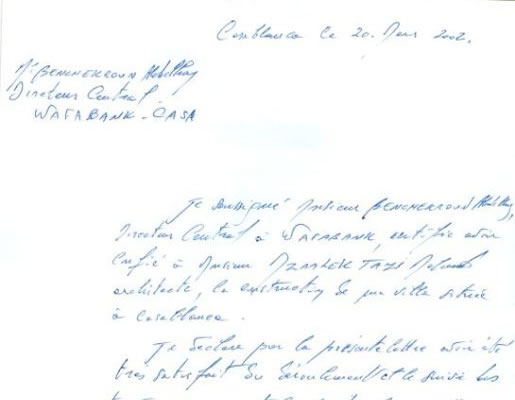 Casablanca le 20. Mars 2002.
Mr BENCHEKROUN
Directeur Central
WAFABANK - CASA
Je soussigné Monsieur BENCHEKROUN
Directeur Central à WAFABANK, certifie avoir
confié à Monsieur TAZI
architecte, la construction de ma villa située
à Casablanca.
Je déclare par la présente lettre avoir été
très satisfait du déroulement et le suivi des